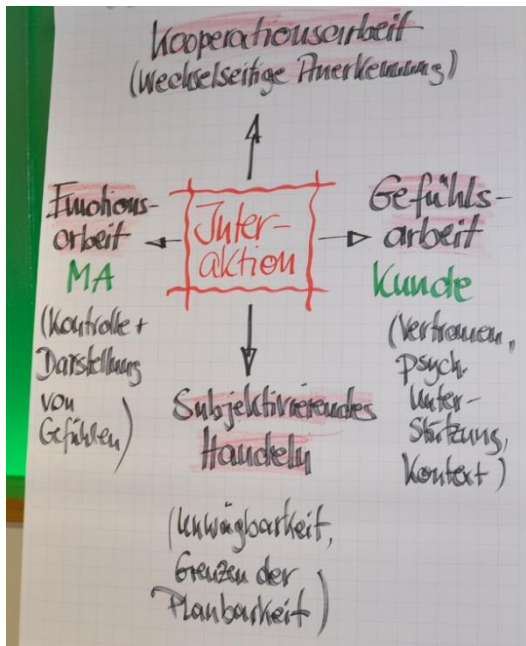 Kooperationsarbeit
(Wechselseitige Anerkennung)
Emotions-
arbeit
MA
(Kontrolle +
Darstellung
von
Gefühlen)
Inter-
aktion
Gefühls-
arbeit
Kunde
(Vertrauen,
psych.
Unter-
stützung,
Kontext)
Subjektivierendes
Handeln
(Unwägbarkeit,
Grenzen der
Planbarkeit)